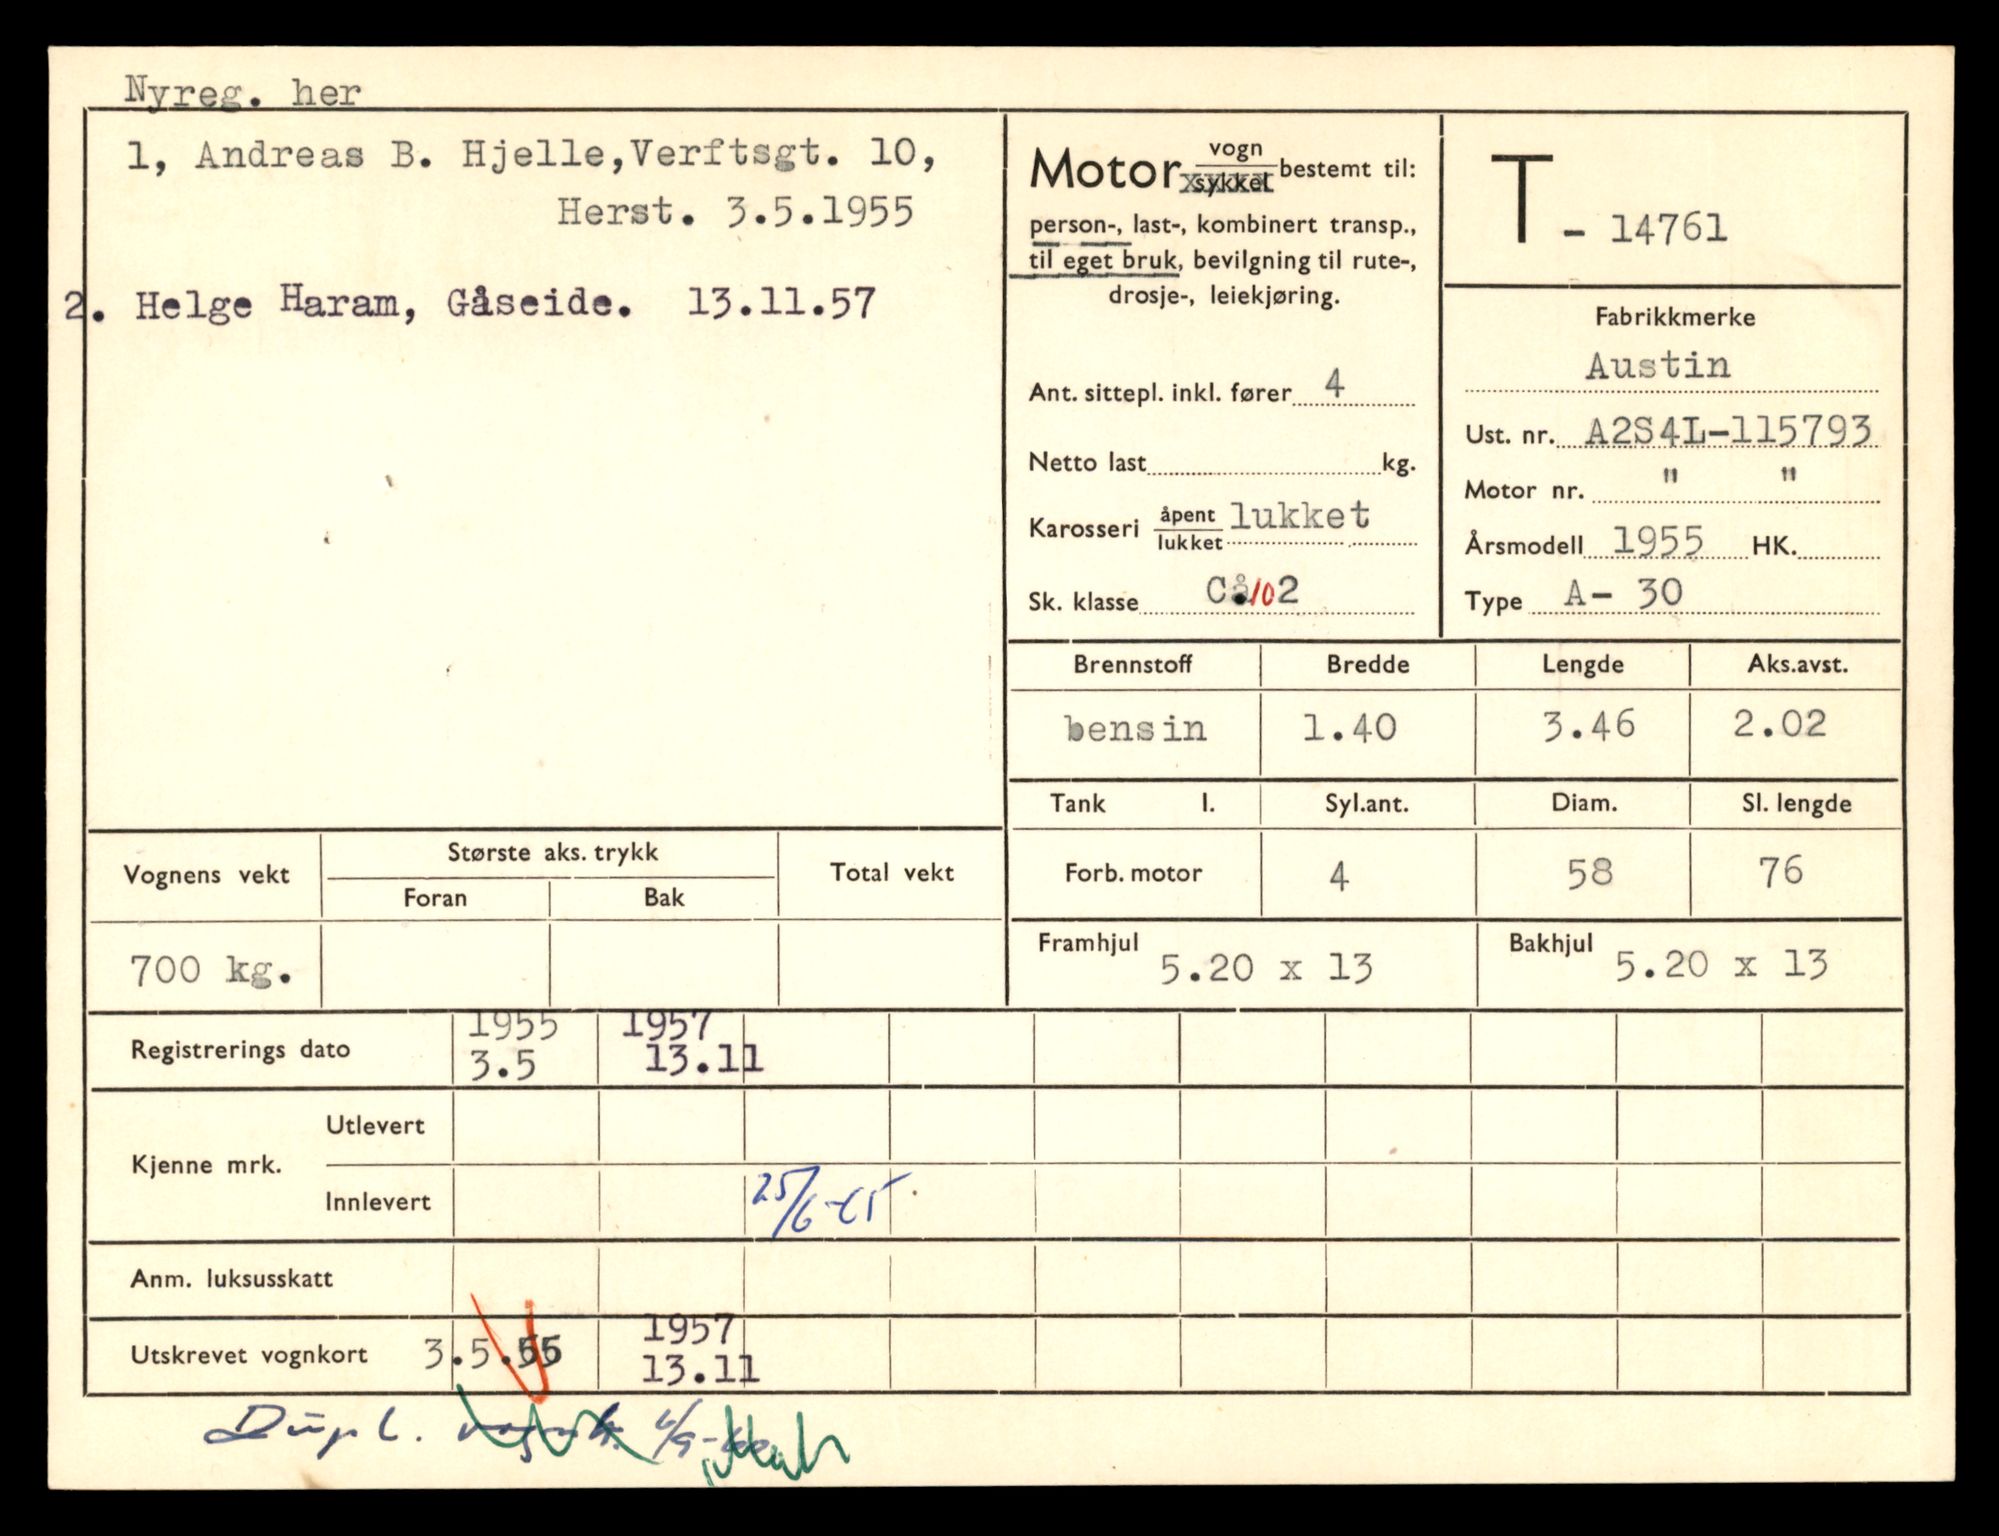 Nyreg. her
1, Andreas B. Hjelle, Verftsgt. 10,
Herst. 3.5.1955
2. Helge Haram, Gåseide. 13.11.57
Motor vogn sykkel bestemt til:
person-, last-, kombinert transp.,
til eget bruk, bevilgning til rute-,
drosje-, leiekjøring.
Ant. sittepl. inkl. fører 4
Netto last kg.
Karosseri åpent lukket lukket
Sk. klasse 10 2
T - 14761
Fabrikkmerke
Austin
Ust. nr. A2S4L-115793
Motor nr. " "
Årsmodell 1955 HK.
Type A- 30
Brennstoff Bredde Lengde Aks.avst.
bensin 1.40 3.46 2.02
Tank l. Syl.ant. Diam. Sl. lengde
Forb. motor 4 58 76
Framhjul 5.20 x 13 Bakhjul 5.20 x 13
Vognens vekt Største aks. trykk Total vekt
Foran Bak
700 kg.
Registrerings dato 1955 3.5 1957 13.11
Kjenne mrk. Utlevert
Innlevert 25/6-65
Anm. luksusskatt
Utskrevet vognkort 3.5.55 1957 13.11
Dupl.